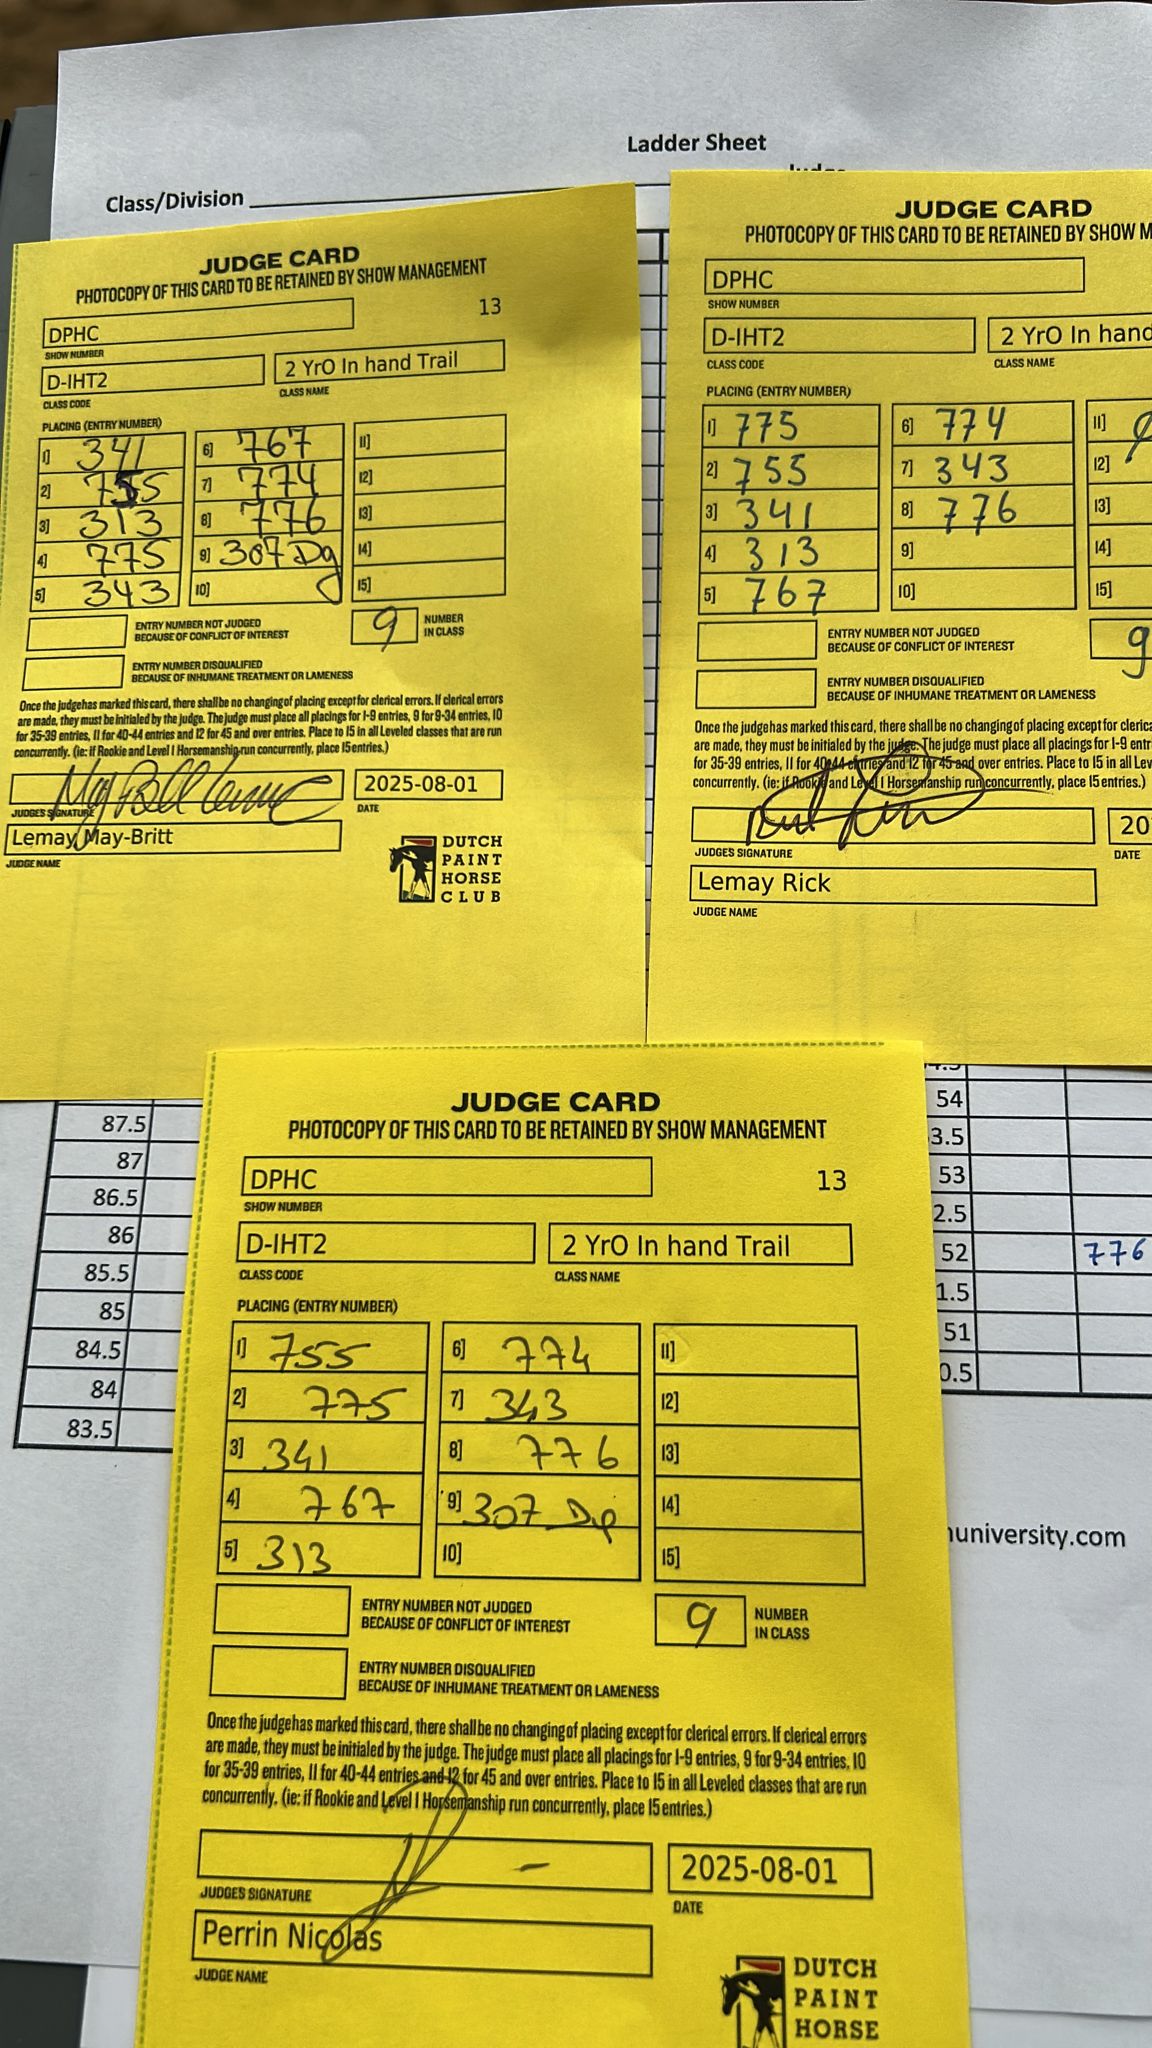 Ladder Sheet
Class/Division
JUDGE CARD
PHOTOCOPY OF THIS CARD TO BE RETAINED BY SHOW MANAGEMENT
DPHC
13
SHOW NUMBER
D-IHT2
2 YrO In hand Trail
CLASS CODE
CLASS NAME
PLACING (ENTRY NUMBER)
1] 341
2] 755
3] 313
4] 775
5] 343
6] 767
7] 774
8] 776
9] 307 Dq
10]
11]
12]
13]
14]
15]
ENTRY NUMBER NOT JUDGED
BECAUSE OF CONFLICT OF INTEREST
9
NUMBER
IN CLASS
ENTRY NUMBER DISQUALIFIED
BECAUSE OF INHUMANE TREATMENT OR LAMENESS
Once the judgehas marked this card, there shall be no changing of placing except for clerical errors. If clerical errors
are made, they must be initialed by the judge. The judge must place all placings for 1-9 entries, 9 for 9-34 entries, 10
for 35-39 entries, 11 for 40-44 entries and 12 for 45 and over entries. Place to 15 in all Leveled classes that are run
concurrently. (ie: if Rookie and Level 1 Horsemanship run concurrently, place 15 entries.)
2025-08-01
JUDGES SIGNATURE
DATE
Lemay May-Britt
JUDGE NAME
DUTCH
PAINT
HORSE
CLUB
JUDGE CARD
PHOTOCOPY OF THIS CARD TO BE RETAINED BY SHOW M
DPHC
SHOW NUMBER
D-IHT2
2 YrO In hand
CLASS CODE
CLASS NAME
PLACING (ENTRY NUMBER)
1] 775
2] 755
3] 341
4] 313
5] 767
6] 774
7] 343
8] 776
9]
10]
11]
12]
13]
14]
15]
ENTRY NUMBER NOT JUDGED
BECAUSE OF CONFLICT OF INTEREST
9
ENTRY NUMBER DISQUALIFIED
BECAUSE OF INHUMANE TREATMENT OR LAMENESS
Once the judgehas marked this card, there shall be no changing of placing except for cleric
are made, they must be initialed by the judge. The judge must place all placings for 1-9 entr
for 35-39 entries, 11 for 40-44 entries and 12 for 45 and over entries. Place to 15 in all Lev
concurrently. (ie: if Rookie and Level 1 Horsemanship run concurrently, place 15 entries.)
20
JUDGES SIGNATURE
DATE
Lemay Rick
JUDGE NAME
87.5
87
86.5
86
85.5
85
84.5
84
83.5
54
3.5
53
2.5
52 776
1.5
51
0.5
university.com
JUDGE CARD
PHOTOCOPY OF THIS CARD TO BE RETAINED BY SHOW MANAGEMENT
DPHC
13
SHOW NUMBER
D-IHT2
2 YrO In hand Trail
CLASS CODE
CLASS NAME
PLACING (ENTRY NUMBER)
1] 755
2] 775
3] 341
4] 767
5] 313
6] 774
7] 343
8] 776
9] 307 Dq
10]
11]
12]
13]
14]
15]
ENTRY NUMBER NOT JUDGED
BECAUSE OF CONFLICT OF INTEREST
9
NUMBER
IN CLASS
ENTRY NUMBER DISQUALIFIED
BECAUSE OF INHUMANE TREATMENT OR LAMENESS
Once the judgehas marked this card, there shall be no changing of placing except for clerical errors. If clerical errors
are made, they must be initialed by the judge. The judge must place all placings for 1-9 entries, 9 for 9-34 entries, 10
for 35-39 entries, 11 for 40-44 entries and 12 for 45 and over entries. Place to 15 in all Leveled classes that are run
concurrently. (ie: if Rookie and Level 1 Horsemanship run concurrently, place 15 entries.)
2025-08-01
JUDGES SIGNATURE
DATE
Perrin Nicolas
JUDGE NAME
DUTCH
PAINT
HORSE